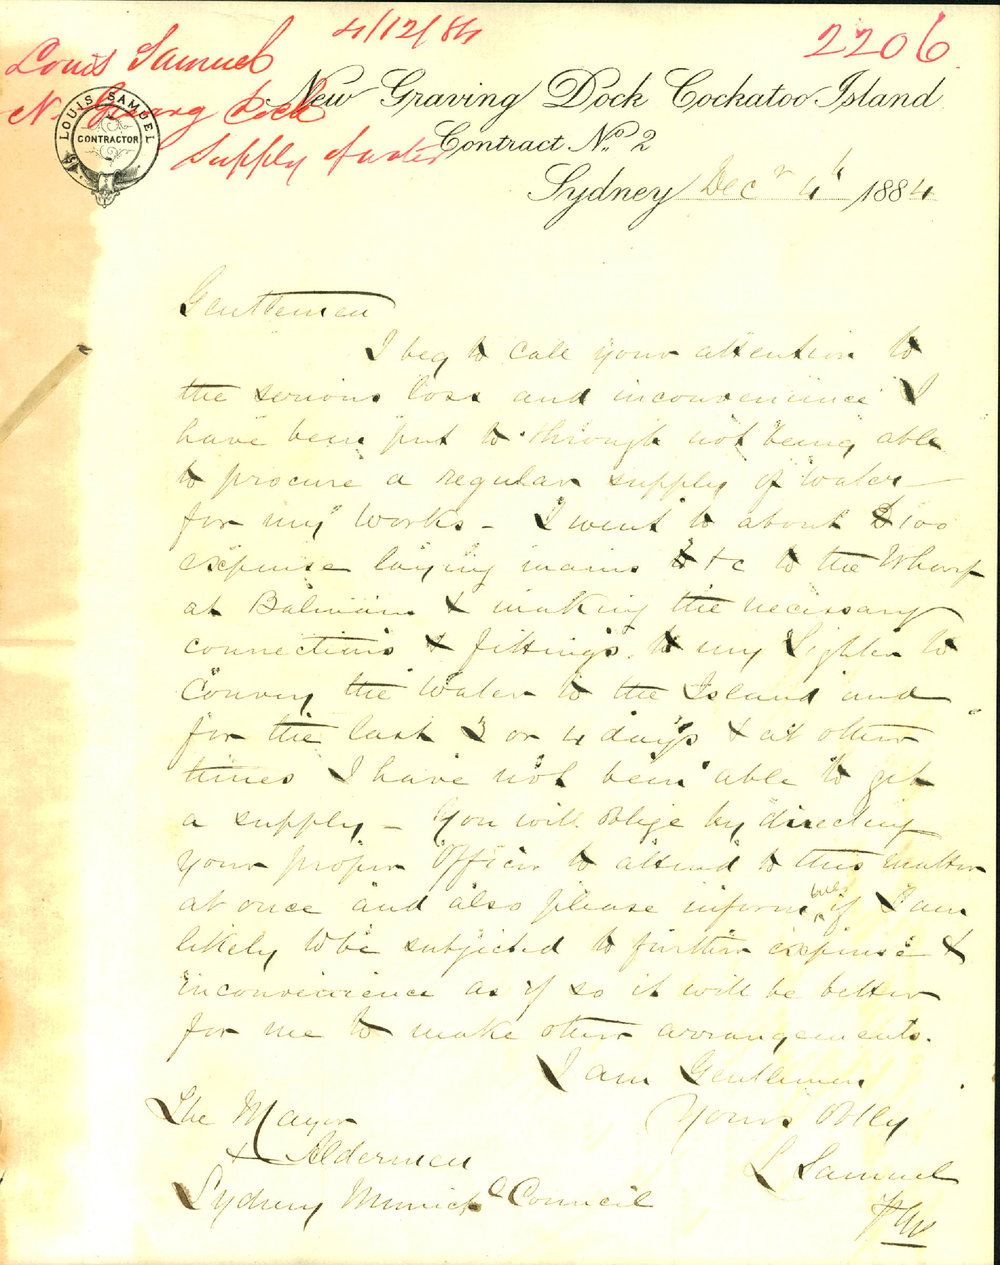 4/12/84
2206
Louis Samuel
N. Graving Dock
Supply of water
LOUIS SAMUEL
CONTRACTOR
New Graving Dock Cockatoo Island
Contract No. 2
Sydney Decr 4th 1884
Gentlemen
I beg to call your attention to
the serious loss and inconvenience I
have been put to through not being able
to procure a regular supply of water
for my works - I went to about £100
expense laying mains &c to the Wharf
at Balmain & making the necessary
connections & fittings to my Lighter to
Convey the water to the Island and
for the last 3 or 4 days & at other
times I have not been able to get
a supply - You will oblige by directing
your proper Officer to attend to this matter
at once and also please inform me if I am
likely to be subjected to further expense &
inconvenience as if so it will be better
for me to make other arrangements.
I am Gentlemen
Yours Obtly
L Samuel
The Mayor
& Aldermen
Sydney Municipl Council